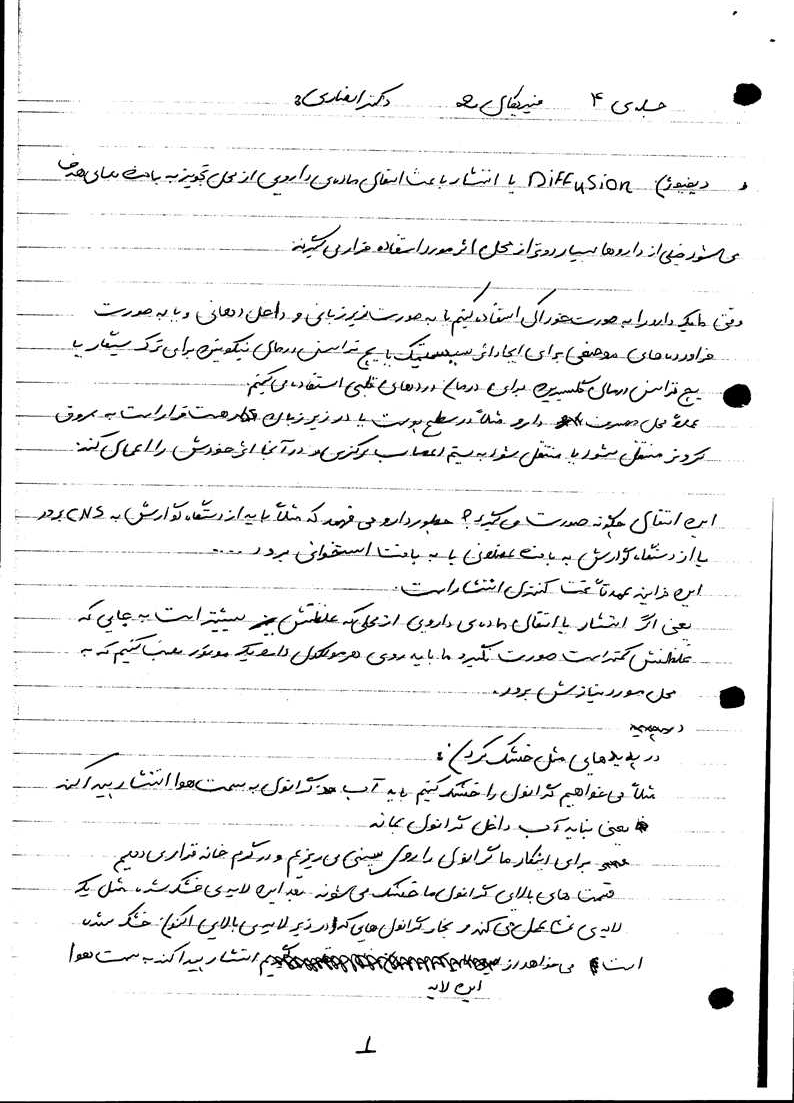 جلسه‌ی ۴ فیزیکال ۲ دکتر انصاری:
دیفیوژن DiFFuSion یا انتشار باعث انتقال ماده‌ی دارویی از محل تجویز به بافت های هدف
می شود خیلی از داروها بسیار دورتر از محل اثر مورد استفاده قرار می گیرند
وقتی ما یک دارو را به صورت خوراکی استفاده کنیم یا به صورت زیر زبانی و داخل دهانی و یا به صورت
فراورده های موضعی برای ایجاد اثر سیستمیک یا پچ ترانس درمال نیکوتین برای ترک سیگار یا
پچ ترانس درمال گلیسیرین برای درمان دردهای قلبی استفاده می کنیم.
عملاً محل مصرف دارو مثلاً در سطح پوست یا در زیر زبان هست قرار است به عروق
کرونر منتقل بشود یا منتقل شود به سیستم اعصاب مرکزی و در آنجا اثر خودش را اعمال کند.
این انتقال چگونه صورت می گیرد؟ چطور دارو می فهمد که مثلاً باید از دستگاه گوارش به CNS برود
یا از دستگاه گوارش به بافت عضلانی یا به بافت استخوانی برود ....
این فرایند عمدتاً تحت کنترل انتشار است.
یعنی اگر انتشار یا انتقال ماده‌ی دارویی از محلی که غلظتش بیشتر است به جایی که
غلظتش کمتر است صورت نگیرد ما باید روی هر مولکول دارو یک موتور نصب کنیم که به
محل مورد نیازش برود.
در پدیده هایی مثل خشک کردن:
مثلاً می خواهیم گرانول را خشک کنیم باید آب گرانول به سمت هوا انتشار پیدا کند
یعنی نباید آب داخل گرانول بماند
برای اینکار ما گرانول را روی سینی می ریزیم و در گرم خانه قرار می دهیم
قسمت های بالای گرانول ما خشک می شوند بعد این لایه ی خشک شده مثل یک
لایه ی غشا عمل می کند و بخار گرانول هایی که در زیر لایه ی بالایی اکنون خشک شده
است می خواهد از انتشار پیدا کند به سمت هوا
این لایه
1